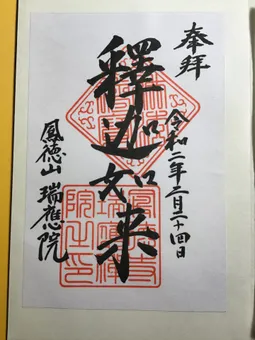 奉拝
令和二年二月二十四日
釋迦如来
鳳徳山 瑞應院